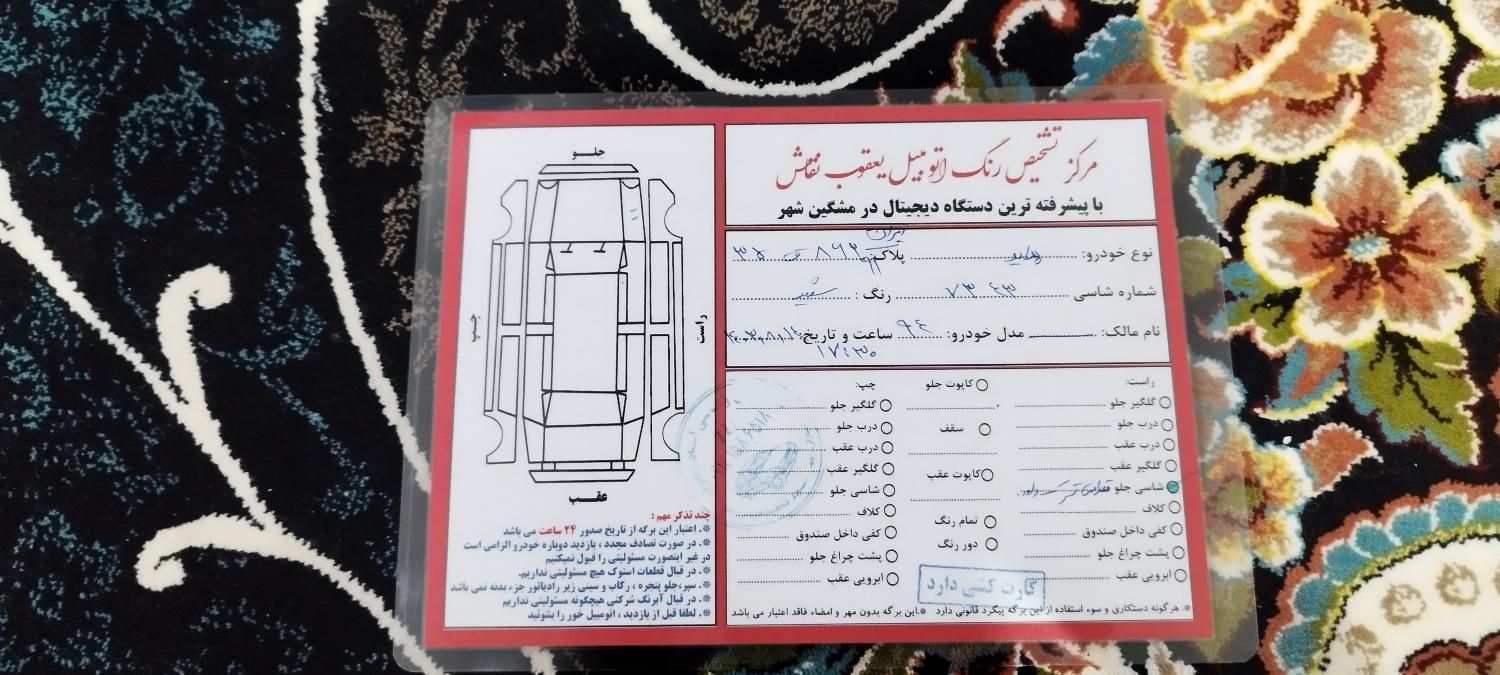 مرکز تشخیص رنگ اتومبیل یعقوب نقاش
با پیشرفته ترین دستگاه دیجیتال در مشگین شهر
نوع خودرو: پلاک: ایران
شماره شاسی ۷۳ رنگ: سفید
نام مالک: مدل خودرو: ۹۴ ساعت و تاریخ
۱۷:۳۰
راست:
گلگیر جلو
درب جلو
درب عقب
گلگیر عقب
شاسی جلو
کلاف
کفی داخل صندوق
پشت چراغ جلو
ابرویی عقب
کاپوت جلو
سقف
کاپوت عقب
تمام رنگ
دور رنگ
چپ:
گلگیر جلو
درب جلو
درب عقب
گلگیر عقب
شاسی جلو
کلاف
کفی داخل صندوق
پشت چراغ جلو
ابرویی عقب
کارت کشی دارد
※ هرگونه دستکاری و سوء استفاده از این برگه پیگرد قانونی دارد ※این برگه بدون مهر و امضاء فاقد اعتبار می باشد
جلو
چپ
راست
عقب
چند تذکر مهم :
※. اعتبار این برگه از تاریخ صدور ۲۴ ساعت می باشد
※. در صورت تصادف مجدد ، بازدید دوباره خودرو الزامی است
در غیر اینصورت مسئولیتی را قبول نمیکنیم
※. در قبال قطعات استوک هیچ مسئولیتی نداریم.
※. سپر،جلو پنجره ، رکاب و سینی زیر رادیاتور جزء بدنه نمی باشد
※. در قبال آبرنگ شرکتی هیچگونه مسئولیتی نداریم
※. لطفا قبل از بازدید ، اتومبیل خور را بشوئید